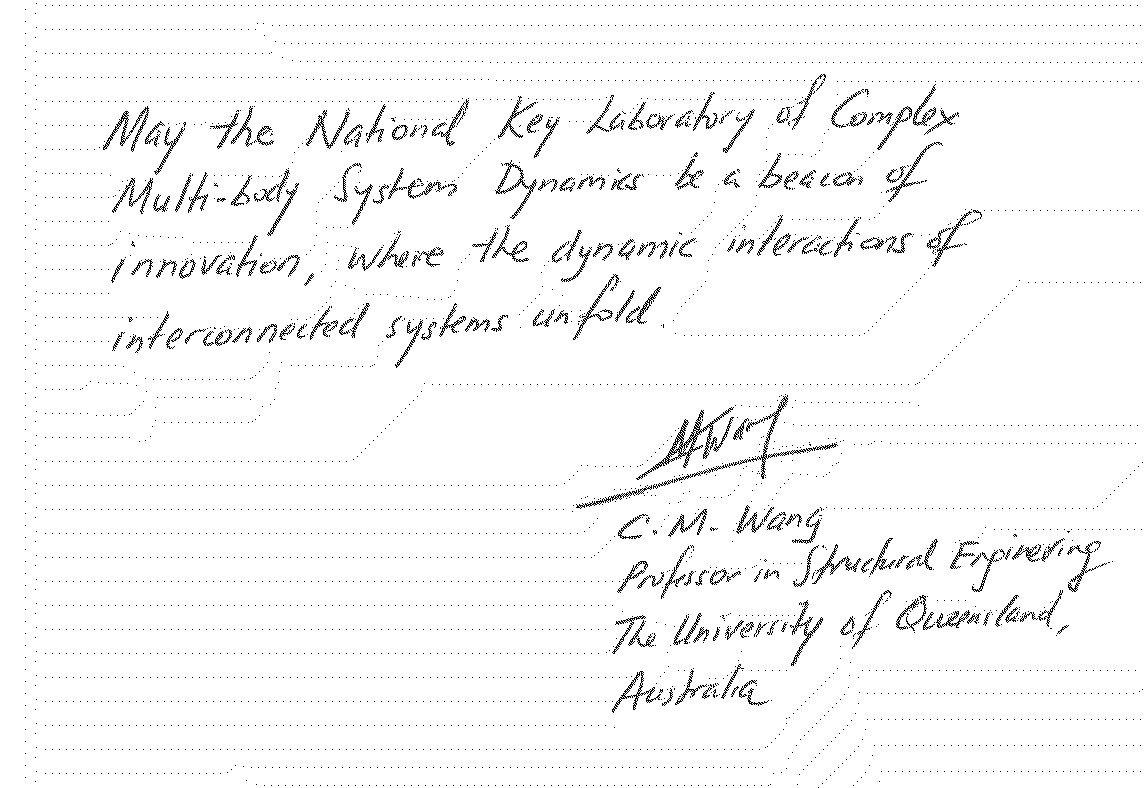 May the National Key Laboratory of Complex
Multi-body System Dynamics be a beacon of
innovation, where the dynamic interactions of
interconnected systems unfold.
C. M. Wang
Professor in Structural Engineering
The University of Queensland,
Australia